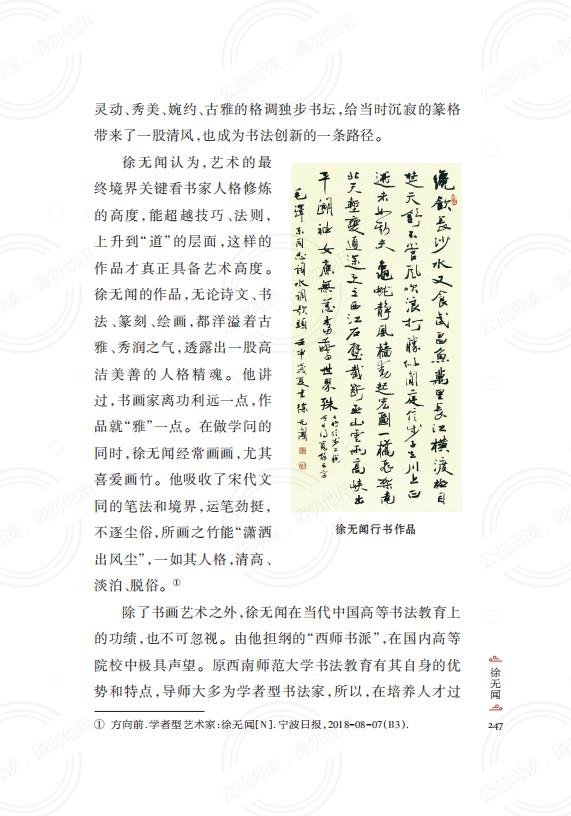 灵动、秀美、婉约、古雅的格调独步书坛,给当时沉寂的篆格
带来了一股清风,也成为书法创新的一条路径。
徐无闻认为,艺术的最
终境界关键看书家人格修炼
的高度,能超越技巧、法则,
上升到“道”的层面,这样的
作品才真正具备艺术高度。
徐无闻的作品,无论诗文、书
法、篆刻、绘画,都洋溢着古
雅、秀润之气,透露出一股高
洁美善的人格精魂。他讲
过,书画家离功利远一点,作
品就“雅”一点。在做学问的
同时,徐无闻经常画画,尤其
喜爱画竹。他吸收了宋代文
同的笔法和境界,运笔劲挺,
不逐尘俗,所画之竹能“潇洒
出风尘”,一如其人格,清高、
淡泊、脱俗。①
纔飲長沙水又食武昌魚萬里長江橫渡極目
楚天舒不管風吹浪打勝似閒庭信步子在川上曰
逝者如斯夫 龜蛇靜風檣動起宏圖一橋飛架南
北天塹變通途更立西江石壁截斷巫山雲雨高峽出
平湖神女應無恙當驚世界殊
毛澤東同志詞水調歌頭 壬申歲夏書徐無聞
徐无闻行书作品
除了书画艺术之外,徐无闻在当代中国高等书法教育上
的功绩,也不可忽视。由他担纲的“西师书派”,在国内高等
院校中极具声望。原西南师范大学书法教育有其自身的优
势和特点,导师大多为学者型书法家,所以,在培养人才过
① 方向前.学者型艺术家:徐无闻[N].宁波日报,2018-08-07(B3).
徐无闻
247
公益阅读,请勿他用